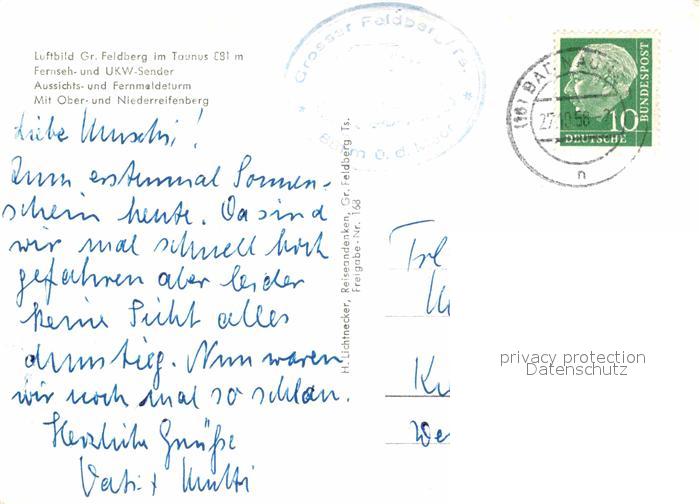 Luftbild Gr. Feldberg im Taunus 881 m
Fernseh- und UKW-Sender
Aussichts- und Fernmeldeturm
Mit Ober- und Niederreifenberg
Liebe Muschi!
Zum erstenmal Sonnen-
schein heute. Da sind
wir mal schnell hoch
gefahren aber leider
keine Sicht alles
dunstig. Nun waren
wir noch mal so schlau.
Herzliche Grüße
Vati + Mutti
H. Lichtnecker, Reiseandenken, Gr. Feldberg Ts.
Freigabe-Nr. 168
Grosser Feldberg/Ts.
(16) BAD
27.10.58
n
10
DEUTSCHE
BUNDESPOST
Frl
privacy protection
Datenschutz